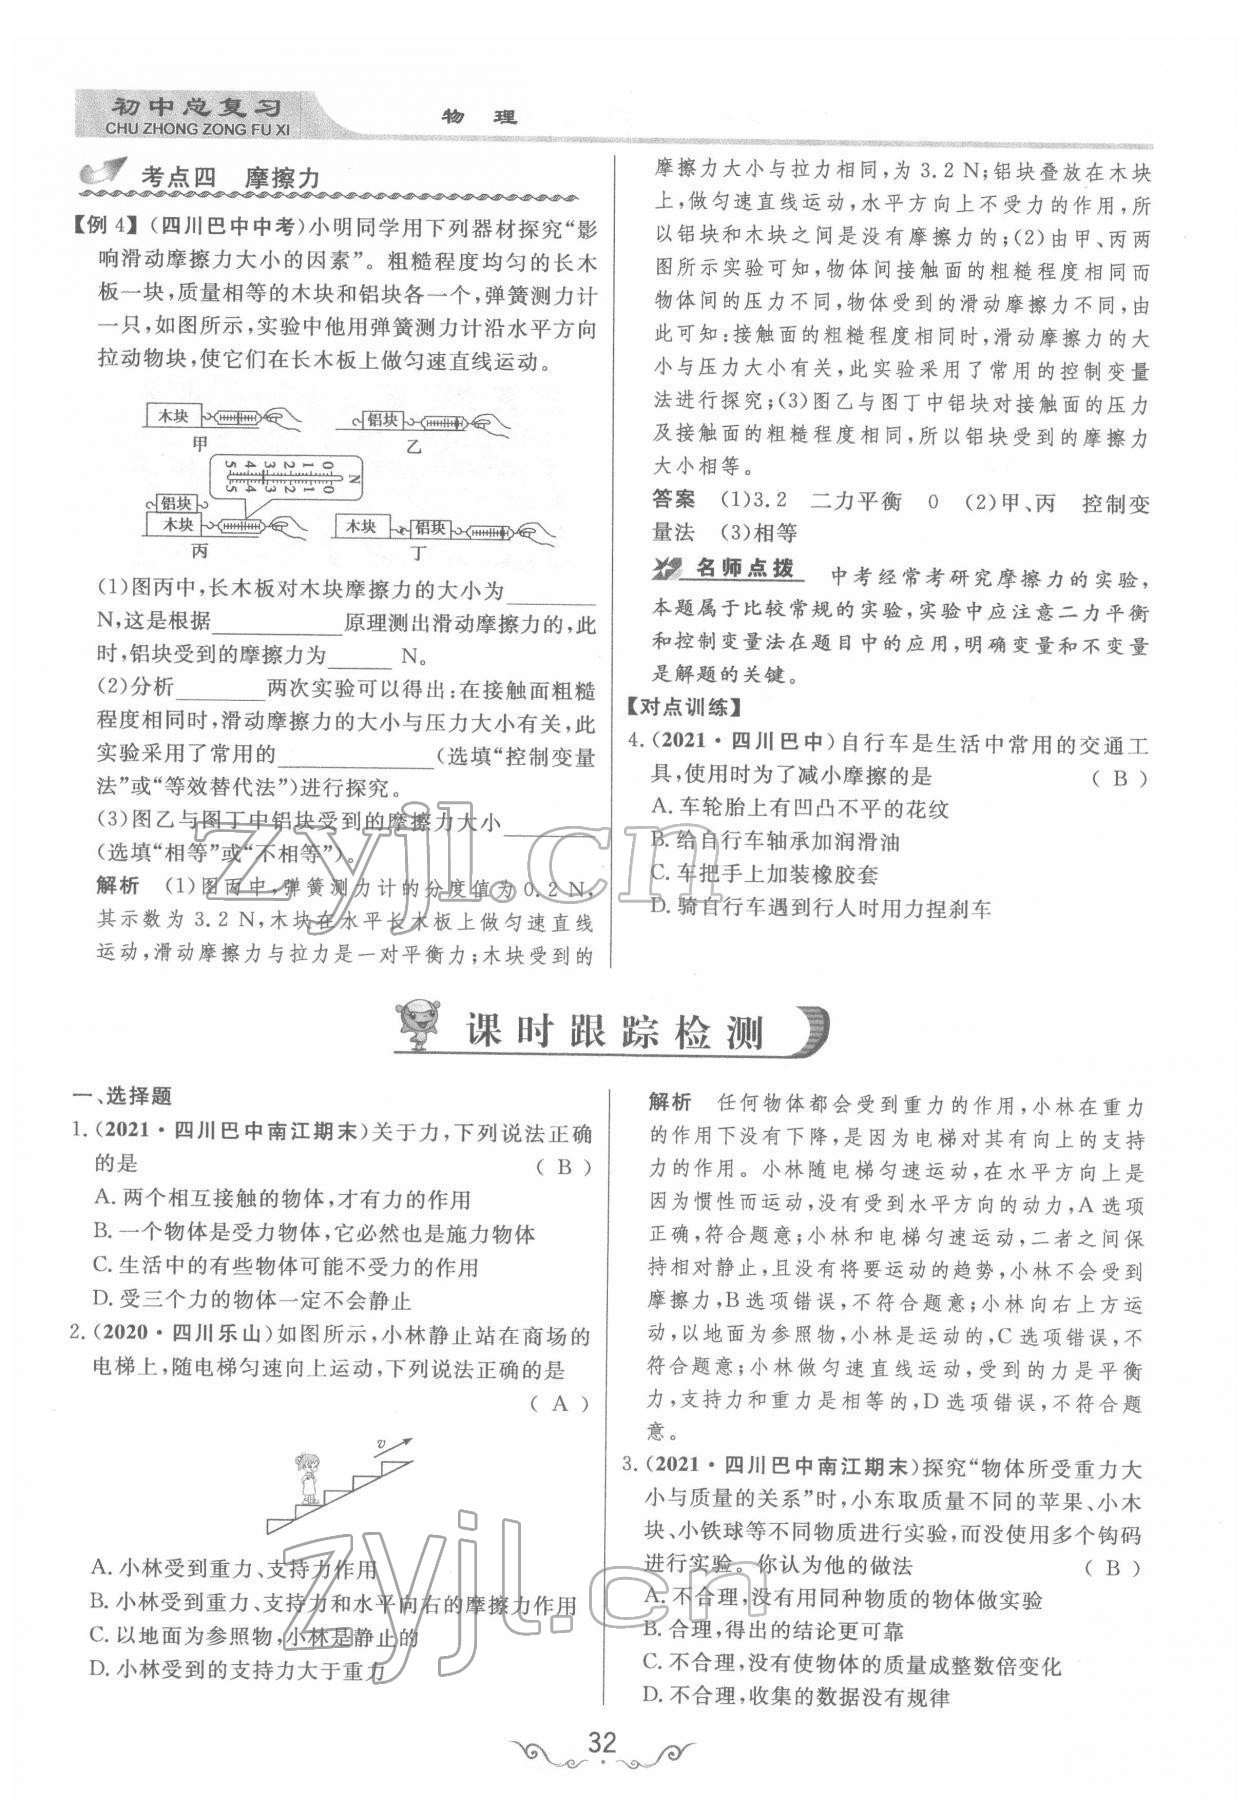 初中总复习
CHU ZHONG ZONG FU XI
物 理
考点四 摩擦力
【例 4】(四川巴中中考)小明同学用下列器材探究“影
响滑动摩擦力大小的因素”。粗糙程度均匀的长木
板一块,质量相等的木块和铝块各一个,弹簧测力计
一只,如图所示,实验中他用弹簧测力计沿水平方向
拉动物块,使它们在长木板上做匀速直线运动。
木块
铝块
甲
乙
5 4 3 2 1 0
N
5 4 3 2 1 0
铝块
木块
木块
铝块
丙
丁
(1)图丙中,长木板对木块摩擦力的大小为________
N,这是根据____________原理测出滑动摩擦力的,此
时,铝块受到的摩擦力为______ N。
(2)分析________两次实验可以得出:在接触面粗糙
程度相同时,滑动摩擦力的大小与压力大小有关,此
实验采用了常用的______________(选填“控制变量
法”或“等效替代法”)进行探究。
(3)图乙与图丁中铝块受到的摩擦力大小________
(选填“相等”或“不相等”)。
解析 (1)图丙中,弹簧测力计的分度值为 0.2 N,
其示数为 3.2 N,木块在水平长木板上做匀速直线
运动,滑动摩擦力与拉力是一对平衡力;木块受到的
摩擦力大小与拉力相同,为 3.2 N;铝块叠放在木块
上,做匀速直线运动,水平方向上不受力的作用,所
以铝块和木块之间是没有摩擦力的;(2)由甲、丙两
图所示实验可知,物体间接触面的粗糙程度相同而
物体间的压力不同,物体受到的滑动摩擦力不同,由
此可知:接触面的粗糙程度相同时,滑动摩擦力的大
小与压力大小有关,此实验采用了常用的控制变量
法进行探究;(3)图乙与图丁中铝块对接触面的压力
及接触面的粗糙程度相同,所以铝块受到的摩擦力
大小相等。
答案 (1)3.2 二力平衡 0 (2)甲、丙 控制变
量法 (3)相等
名师点拨 中考经常考研究摩擦力的实验,
本题属于比较常规的实验,实验中应注意二力平衡
和控制变量法在题目中的应用,明确变量和不变量
是解题的关键。
【对点训练】
4.(2021·四川巴中)自行车是生活中常用的交通工
具,使用时为了减小摩擦的是 ( B )
A. 车轮胎上有凹凸不平的花纹
B. 给自行车轴承加润滑油
C. 车把手上加装橡胶套
D. 骑自行车遇到行人时用力捏刹车
zyjl.cn
课时跟踪检测
一、选择题
1.(2021·四川巴中南江期末)关于力,下列说法正确
的是 ( B )
A. 两个相互接触的物体,才有力的作用
B. 一个物体是受力物体,它必然也是施力物体
C. 生活中的有些物体可能不受力的作用
D. 受三个力的物体一定不会静止
2.(2020·四川乐山)如图所示,小林静止站在商场的
电梯上,随电梯匀速向上运动,下列说法正确的是
( A )
v
A. 小林受到重力、支持力作用
B. 小林受到重力、支持力和水平向右的摩擦力作用
C. 以地面为参照物,小林是静止的
D. 小林受到的支持力大于重力
解析 任何物体都会受到重力的作用,小林在重力
的作用下没有下降,是因为电梯对其有向上的支持
力的作用。小林随电梯匀速运动,在水平方向上是
因为惯性而运动,没有受到水平方向的动力,A 选项
正确,符合题意;小林和电梯匀速运动,二者之间保
持相对静止,且没有将要运动的趋势,小林不会受到
摩擦力,B 选项错误,不符合题意;小林向右上方运
动,以地面为参照物,小林是运动的,C 选项错误,不
符合题意;小林做匀速直线运动,受到的力是平衡
力,支持力和重力是相等的,D 选项错误,不符合题
意。
3.(2021·四川巴中南江期末)探究“物体所受重力大
小与质量的关系”时,小东取质量不同的苹果、小木
块、小铁球等不同物质进行实验,而没使用多个钩码
进行实验。你认为他的做法 ( B )
A. 不合理,没有用同种物质的物体做实验
B. 合理,得出的结论更可靠
C. 不合理,没有使物体的质量成整数倍变化
D. 不合理,收集的数据没有规律
zyjl.cn
32